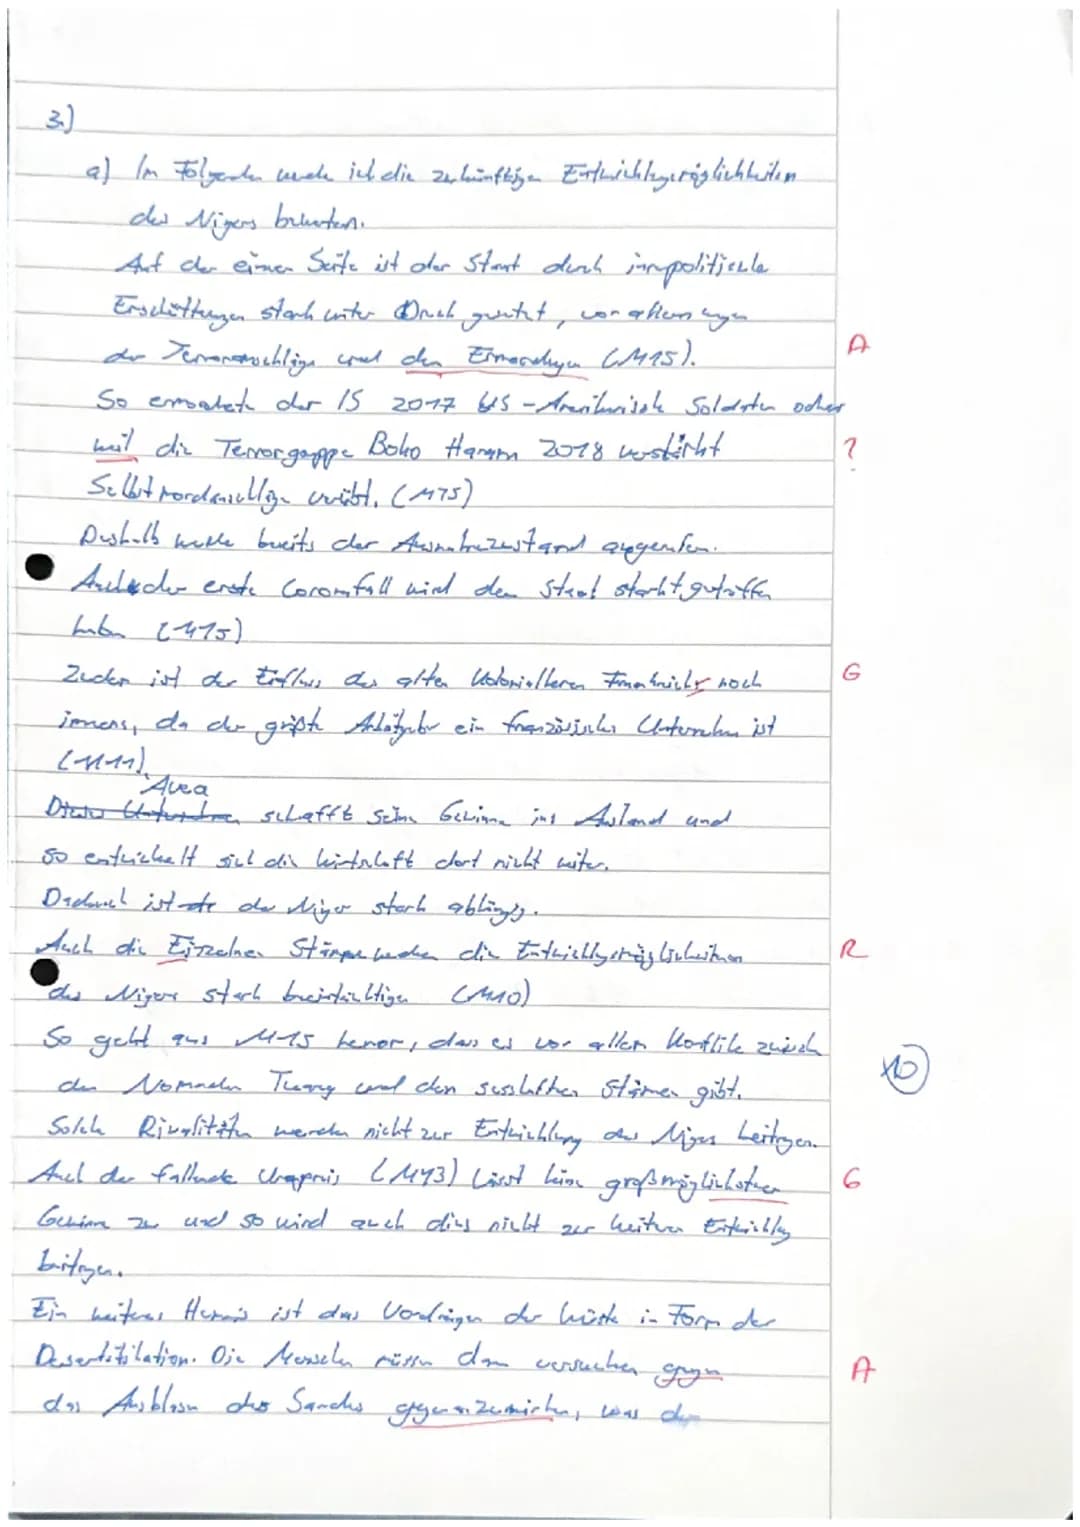 3.)
a) Im Folgenden werde ich die zukünftigen Entwicklungsmöglichkeiten
des Nigers bewerten.
Auf der einen Seite ist der Staat durch innpolitische
Erschütterungen stark unter Druck gesetzt, vor allem wegen
der Terroranschläge und den Ermordungen (M15). A
So ermordete der IS 2017 US-Amerikanische Soldaten oder
weil die Terrorgruppe Boko Haram 2018 verstärkt ?
Selbstmordanschläge verübt. (M15)
Deshalb wurde bereits der Ausnahmezustand ausgerufen.
Auch der erste Coronafall wird den Staat stark getroffen
haben (M15)
Zudem ist der Einfluss des alten Kolonialherren Frankreich noch G
immens, da der größte Arbeitgeber ein französisches Unternehmen ist
(M11).
Avea
schafft seine Gewinne ins Ausland und
so entwickelt sich die Wirtschaft dort nicht weiter.
Dadurch ist der Niger stark abhängig.
Auch die Einzelnen Stämme werden die Entwicklungsmöglichkeiten R
des Nigers stark beeinträchtigen (M10)
So geht aus M15 hervor, dass es vor allem Konflike zwisch
den Nomaden Tuareg und den sesshaften Stämmen gibt. 10
Solche Rivalitäten werden nicht zur Entwicklung des Nigers beitragen.
Auch der fallende Uranpreis (M43) lässt keine großmöglichsten G
Gewinne zu und so wird auch dies nicht zur weiteren Entwicklung
beitragen.
Ein weiteres Hemnis ist das Vordringen der Wüste in Form der
Desertifikation. Die Menschen müssen dann versuchen gegen A
das Ausblasen des Sandes gegenanzuwirken, was den